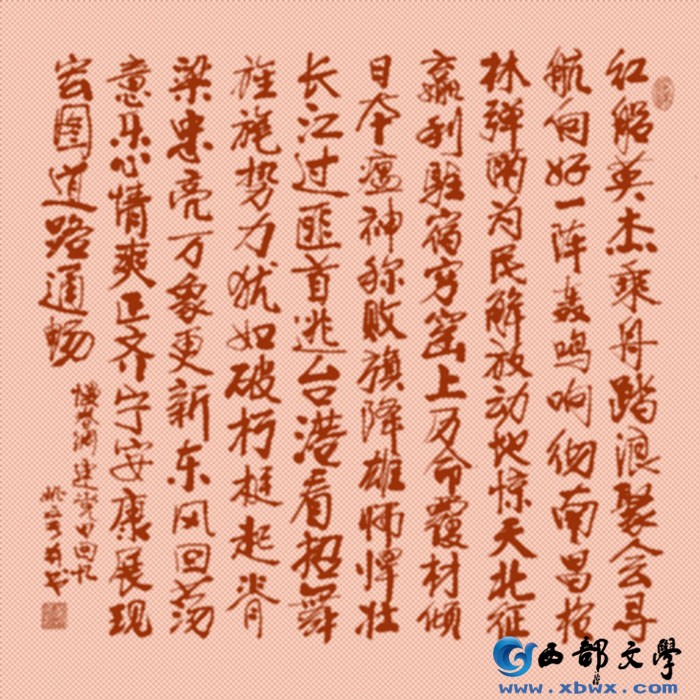 红船英杰乘舟踏浪聚会寻
航向好一阵轰鸣响彻南昌枪
林弹雨为民解放动地惊天北征
赢利驻宿穷窑上万命覆材倾
日本瘟神称败旗降雄师悍壮
长江过匪首逃台港看招舞
旌旄势力犹如破朽挺起脊
梁忠亮万象更新东风回荡
意乐心情爽正齐宁安康展现
宏图道路通畅
建党日回忆
西部文学
www.xbwx.com